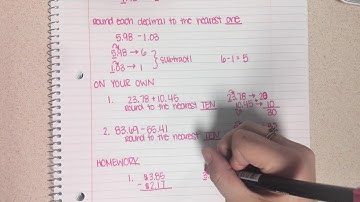 Round each decimal to the nearest one
5.98 - 1.03
5.98 → 6
1.03 → 1
} subtract!
6-1 = 5
ON YOUR OWN
1. 23.78 + 10.45
round to the nearest TEN
23.78 → 20
10.45 → 10
30
2. 83.69 - 65.41
round to the nearest TEN
HOMEWORK
1. $3.85
- $2.17